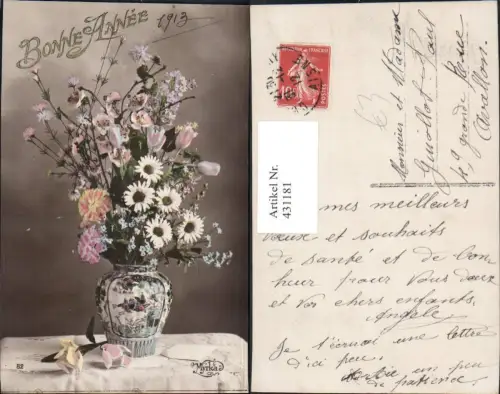 BONNE ANNÉE
1913
62
Artikel Nr.
431181
Monsieur et Madame
Guillot Paul
49 grande Rue
Avallon.
mes meilleurs
vœux et souhaits
de santé et de bon
heur pour vous deux
et vos chers enfants.
Angèle
Je t'écrirai une lettre
d'ici peu.
un peu
de patience.